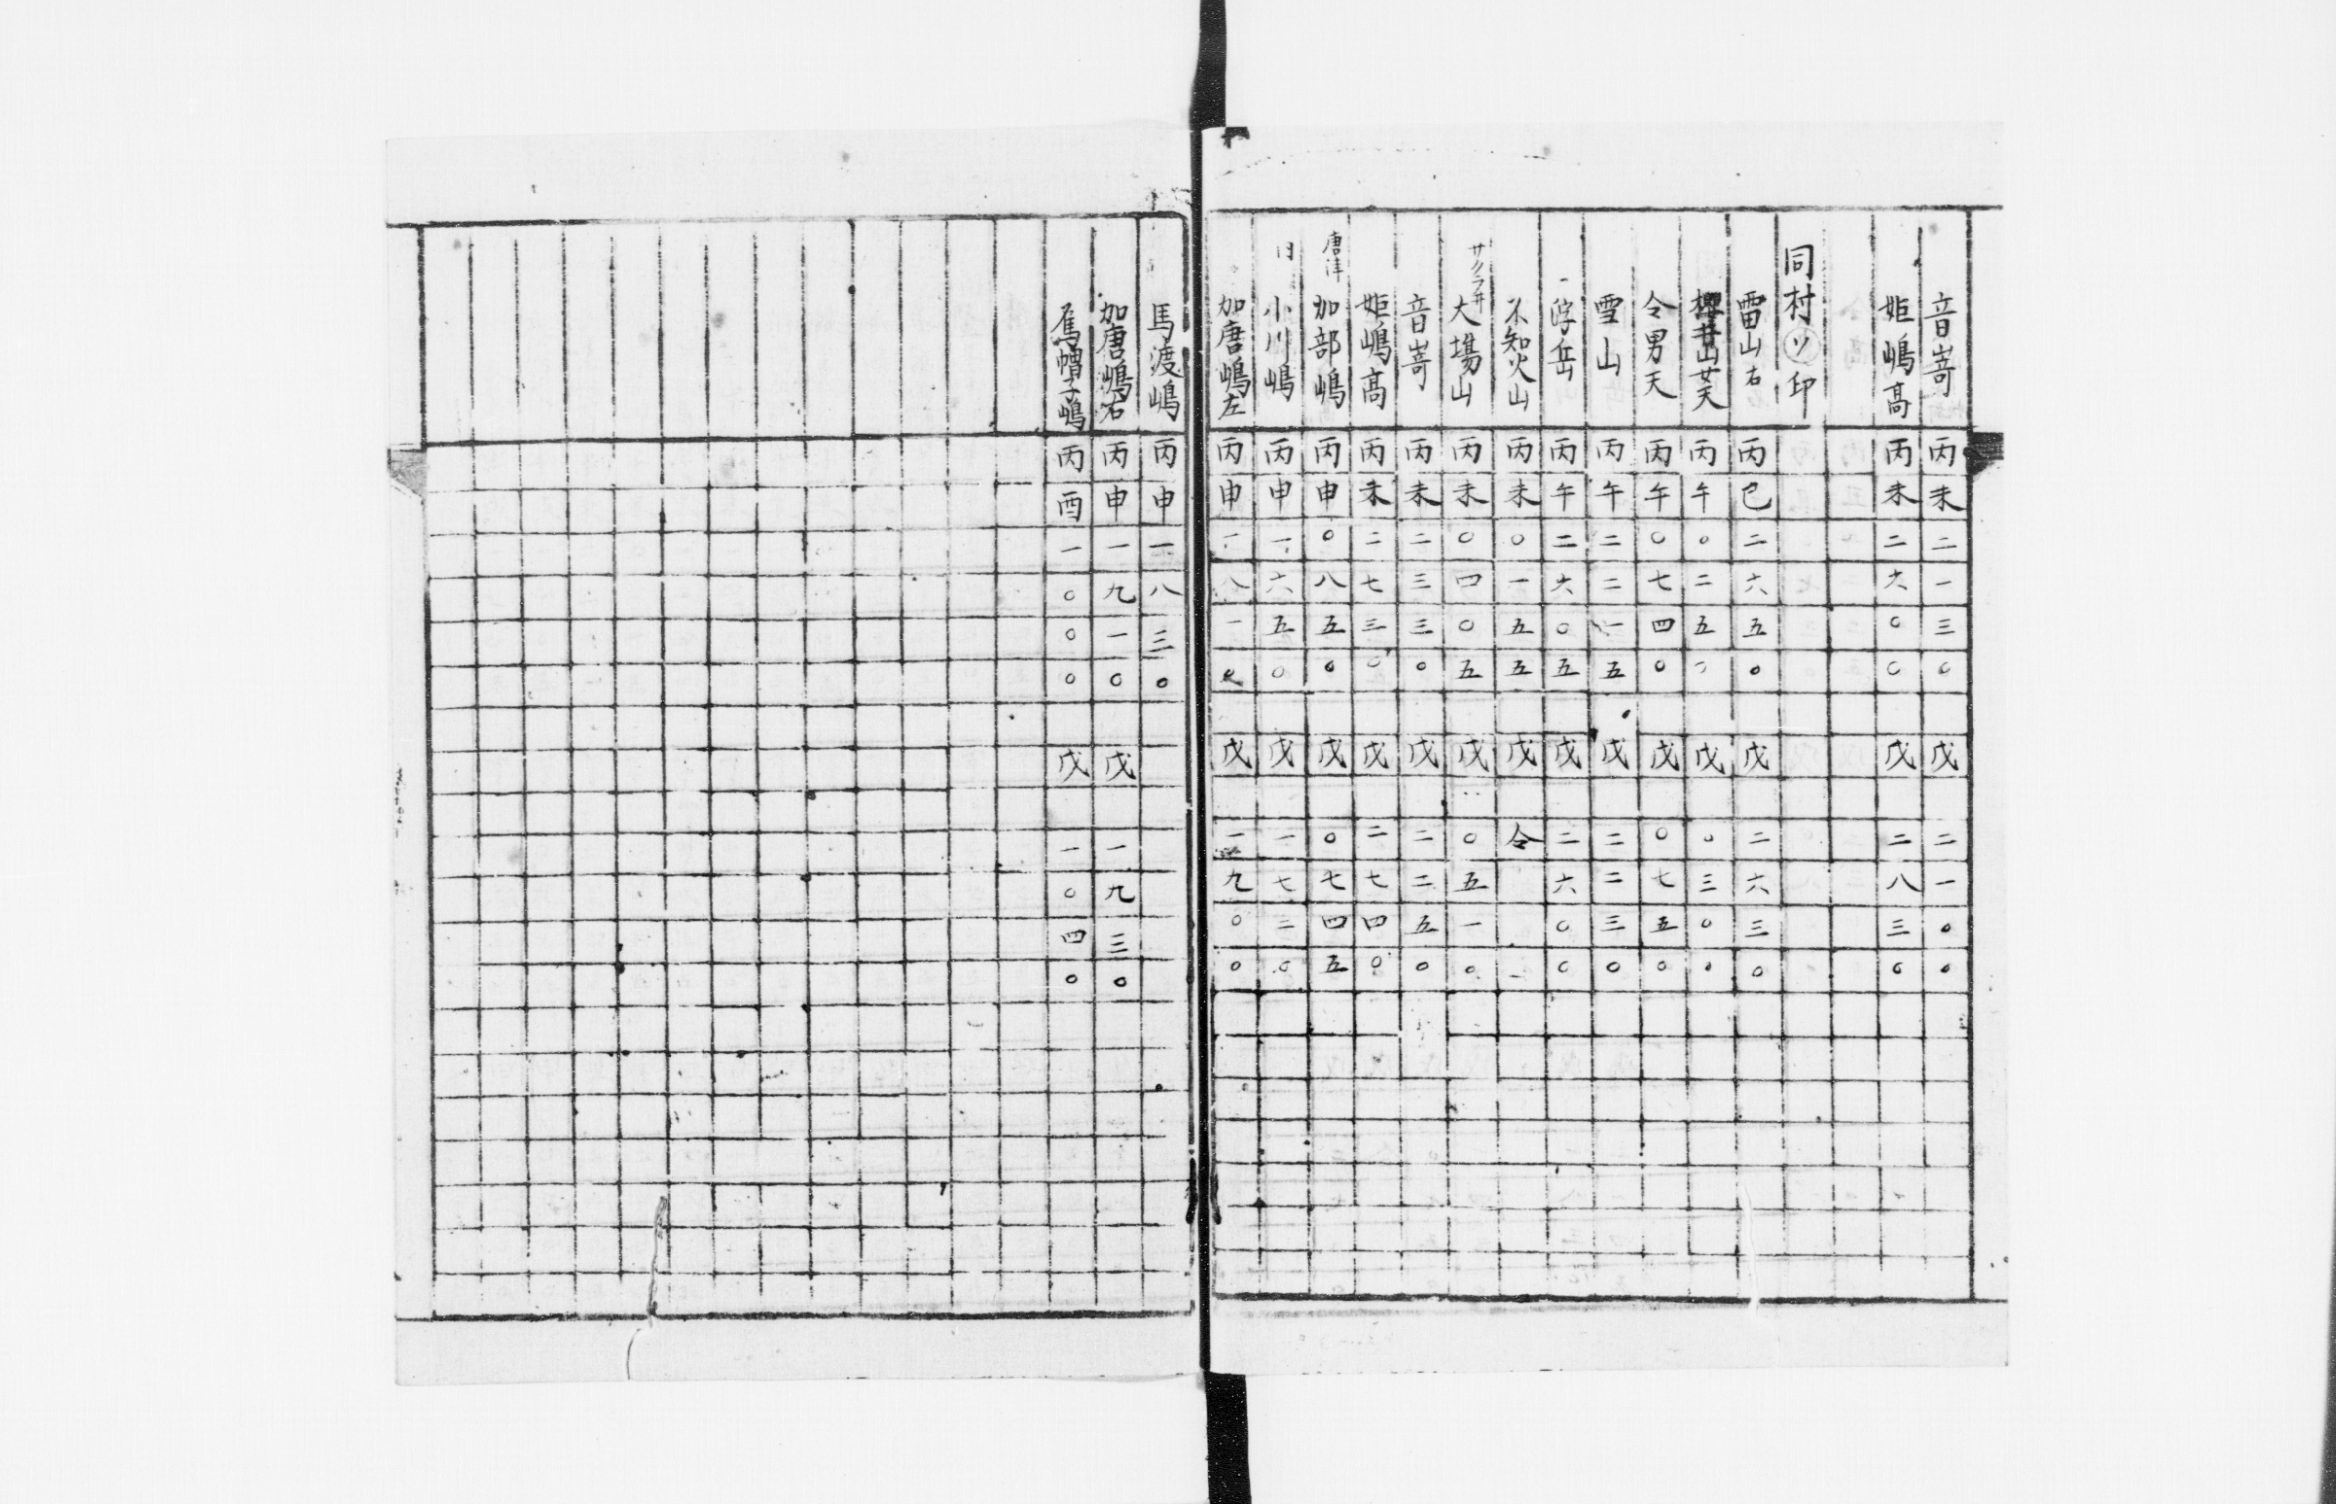 音嵜 丙未二一三〇 戊 二一〇〇
姫嶋高 丙未二六〇〇 戊 二八三〇
同村㋡印
雷山右 丙巳二六五〇 戊 二六三〇
山女天 丙午〇二五〇 戊 〇三〇〇
令男天 丙午〇七四〇 戊 〇七五〇
雪山 丙午二二一五 戊 二二三〇
浮岳 丙午二六〇五 戊 二六〇〇
不知火山 丙未〇一五五 戊 令
サクラ井 大場山 丙未〇四〇五 戊 〇五一〇
音嵜 丙未二三三〇 戊 二二五〇
姫嶋高 丙未二七三〇 戊 二七四〇
唐津 加部嶋 丙申〇八五〇 戊 〇七四五
日 小川嶋 丙申一六五〇 戊 一七二〇
加唐嶋左 丙申一八一 戊 一九〇〇
馬渡嶋 丙申一八三〇
加唐嶋右 丙申一九一〇 戊 一九三〇
帽子嶋 丙酉一〇〇〇 戊 一〇四〇